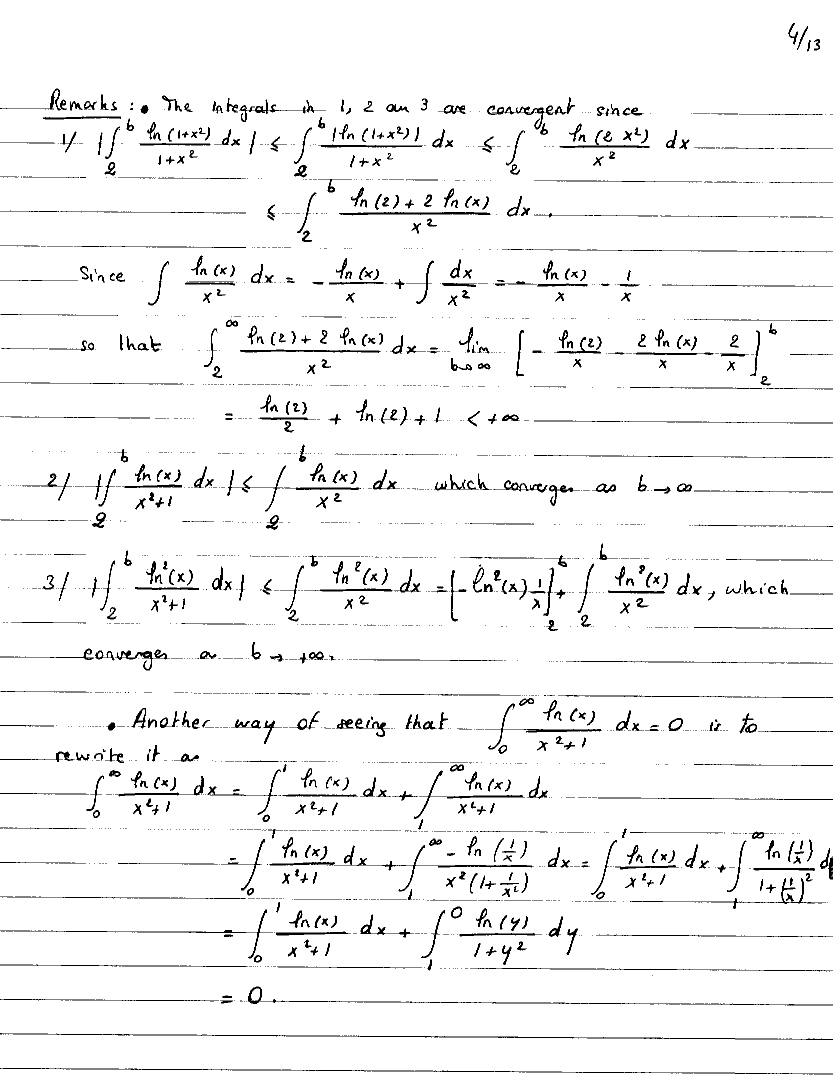 4/13
Remarks : • The integrals in 1, 2 an 3 are convergent since
1/ |∫_2^b ln(1+x²)/(1+x²) dx| ≤ ∫_2^b |ln(1+x²)|/(1+x²) dx ≤ ∫_2^b ln(2x²)/x² dx
≤ ∫_2^b (ln(2) + 2 ln(x))/x² dx.
Since ∫ ln(x)/x² dx = - ln(x)/x + ∫ dx/x² = - ln(x)/x - 1/x
so that ∫_2^∞ (ln(2) + 2 ln(x))/x² dx = lim_{b→∞} [- ln(2)/x - 2 ln(x)/x - 2/x]_2^b
= ln(2)/2 + ln(2) + 1 < +∞
2/ |∫_2^b ln(x)/(x²+1) dx| ≤ ∫_2^b ln(x)/x² dx which converges as b → ∞
3/ |∫_2^b ln²(x)/(x²+1) dx| ≤ ∫_2^b ln²(x)/x² dx = [- ln²(x) 1/x]_2^b + ∫_2^b ln²(x)/x² dx, which
converges as b → +∞.
• Another way of seeing that ∫_0^∞ ln(x)/(x²+1) dx = 0 is to
rewrite it as
∫_0^∞ ln(x)/(x²+1) dx = ∫_0^1 ln(x)/(x²+1) dx + ∫_1^∞ ln(x)/(x²+1) dx
= ∫_0^1 ln(x)/(x²+1) dx + ∫_1^∞ - ln(1/x)/(x²(1+1/x²)) dx = ∫_0^1 ln(x)/(x²+1) dx + ∫_1^∞ ln(1/x)/(1+(1/x)²) d
= ∫_0^1 ln(x)/(x²+1) dx + ∫_1^0 ln(y)/(1+y²) dy
= 0.